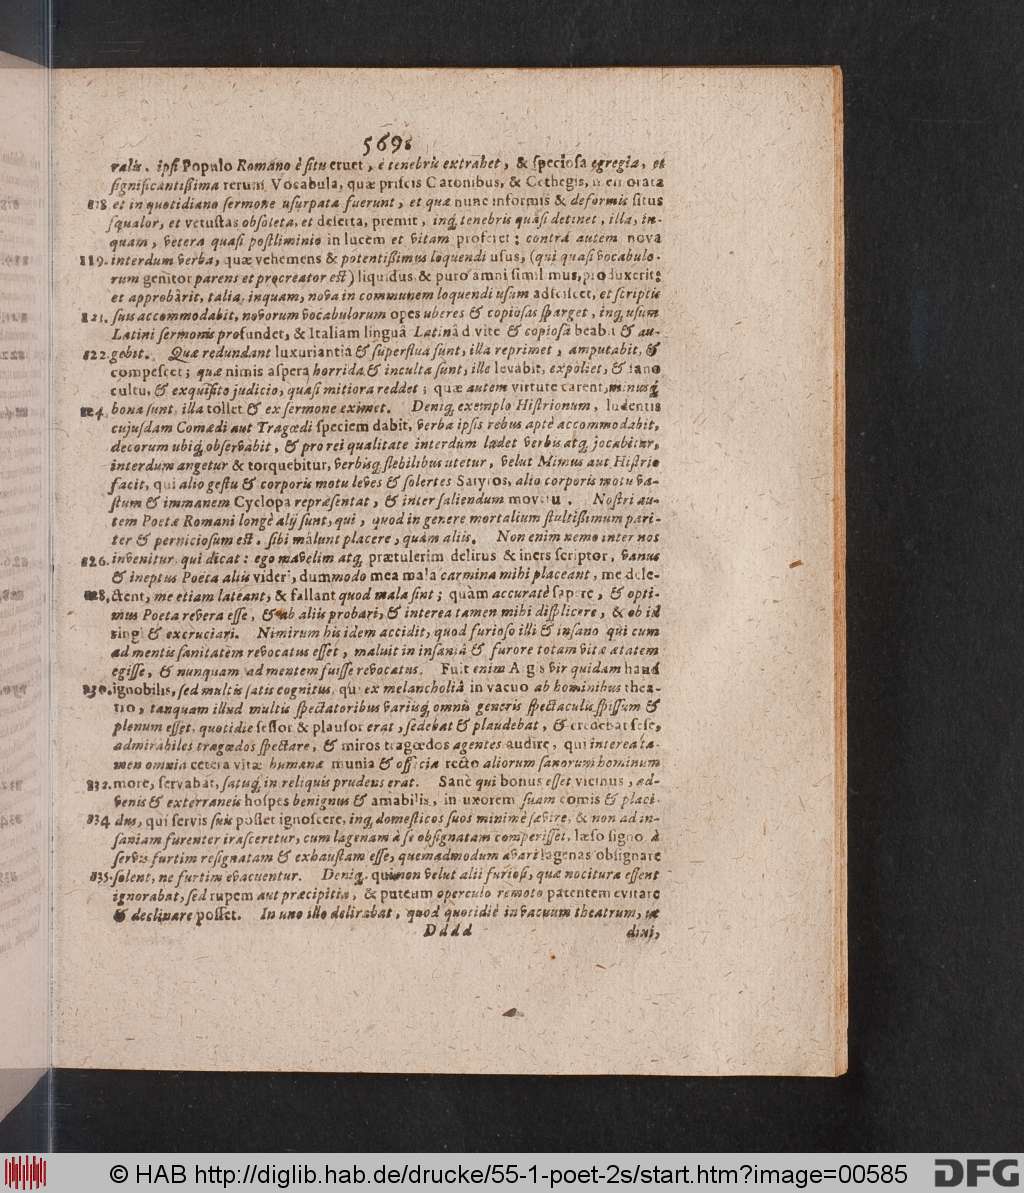 569.
ralis. ipsi Populo Romano è situ eruet, è tenebris extrahet, & speciosa egregia, et
significantißima rerum Vocabula, quæ priscis Catonibus, & Cethegis, memorata
118 et in quotidiano sermone usurpata fuerunt, et quæ nunc informis & deformis situs
squalor, et vetustas obsoleta, et deserta, premit, inq; tenebris quasi detinet, illa, in-
quam, vetera quasi postliminio in lucem et vitam proferet: contrà autem nova
119. interdum verba, quæ vehemens & potentißimus loquendi usus, (qui quasi vocabulo-
rum genitor parens et procreator est) liquidus & puro amni simillimus, produxerit
et approbârit, talia, inquam, nova in communem loquendi usum adsciscet, et scriptis
121. suis accommodabit, novorum vocabulorum opes uberes & copiosas sparget, inq; usum
Latini sermonis profundet, & Italiam linguâ Latinâ divite & copiosâ beabit & au-
122. gebit. Quæ redundant luxuriantiâ & superflua sunt, illa reprimet, amputabit, &
compescet; quæ nimis aspera horrida & inculta sunt, ille levabit, expoliet, & sano
cultu, & exquisito judicio, quasi mitiora reddet; quæ autem virtute carent, minusq;
124. bona sunt, illa tollet & ex sermone eximet. Deniq; exemplo Histrionum, ludentis
cujusdam Comœdi aut Tragœdi speciem dabit, verba ipsis rebus aptè accommodabit,
decorum ubiq; observabit, & pro rei qualitate interdum ludet verbis atq; jocabitur,
interdum angetur & torquebitur, verbisq; flebilibus utetur, velut Mimus aut Histrio
facit, qui alio gestu & corporis motu leves & solertes Satyros, alio corporis motu va-
stum & immanem Cyclopa repræsentat, & inter saliendum movetur. Nostri au-
tem Poetæ Romani longè alij sunt, qui, quod in genere mortalium stultißimum pari-
ter & perniciosum est, sibi malunt placere, quàm aliis. Non enim nemo inter nos
126. invenitur, qui dicat: ego mavelim atq; prætulerim delirus & iners scriptor, vanus
& ineptus Poeta aliis videri, dummodo mea mala carmina mihi placeant, me dele-
128. ctent, me etiam lateant, & fallant quod mala sint; quàm accuratè sapere, & opti-
mus Poeta revera esse, & ab aliis probari, & interea tamen mihi displicere, & ob id
ringi & excruciari. Nimirum his idem accidit, quod furioso illi & insano qui cum
ad mentis sanitatem revocatus esset, maluit in insaniâ & furore totam vitæ ætatem
egisse, & nunquam ad mentem fuisse revocatus. Fuit enim Argis vir quidam haud
130. ignobilis, sed multis satis cognitus, qui ex melancholiâ in vacuo ab hominibus thea-
tro, tanquam illud multis spectatoribus variisq; omnis generis spectaculis spissum &
plenum esset, quotidie sessor & plausor erat, sedebat & plaudebat, & credebat sese,
admirabiles tragœdos spectare, & miros tragœdos agentes audire, qui interea ta-
men omnia cetera vitæ humanæ munia & officia recto aliorum sanorum hominum
132. more, servabat, satuq; in reliquis prudens erat. Sanè qui bonus esset vicinus, ad-
venis & exterraneis hospes benignus & amabilis, in uxorem suam comis & placi-
134 dus, qui servis suis posset ignoscere, inq; domesticos suos minimè sævire, & non ad in-
saniam furenter irasceretur, cum lagenam à se obsignatam comperisset, læso signo, à
servis furtim resignatam & exhaustam esse, quemadmodum avari lagenas obsignare
135. solent, ne furtim evacuentur. Deniq; qui non velut alii furiosi, quæ nocitura essent
ignorabat, sed rupem aut præcipitia, & puteum operculo remoto patentem evitare
& declinare posset. In uno illo delirabat, quod quotidiè in vacuum theatrum, ut
Dddd
dixi,
© HAB http://diglib.hab.de/drucke/55-1-poet-2s/start.htm?image=00585
DFG